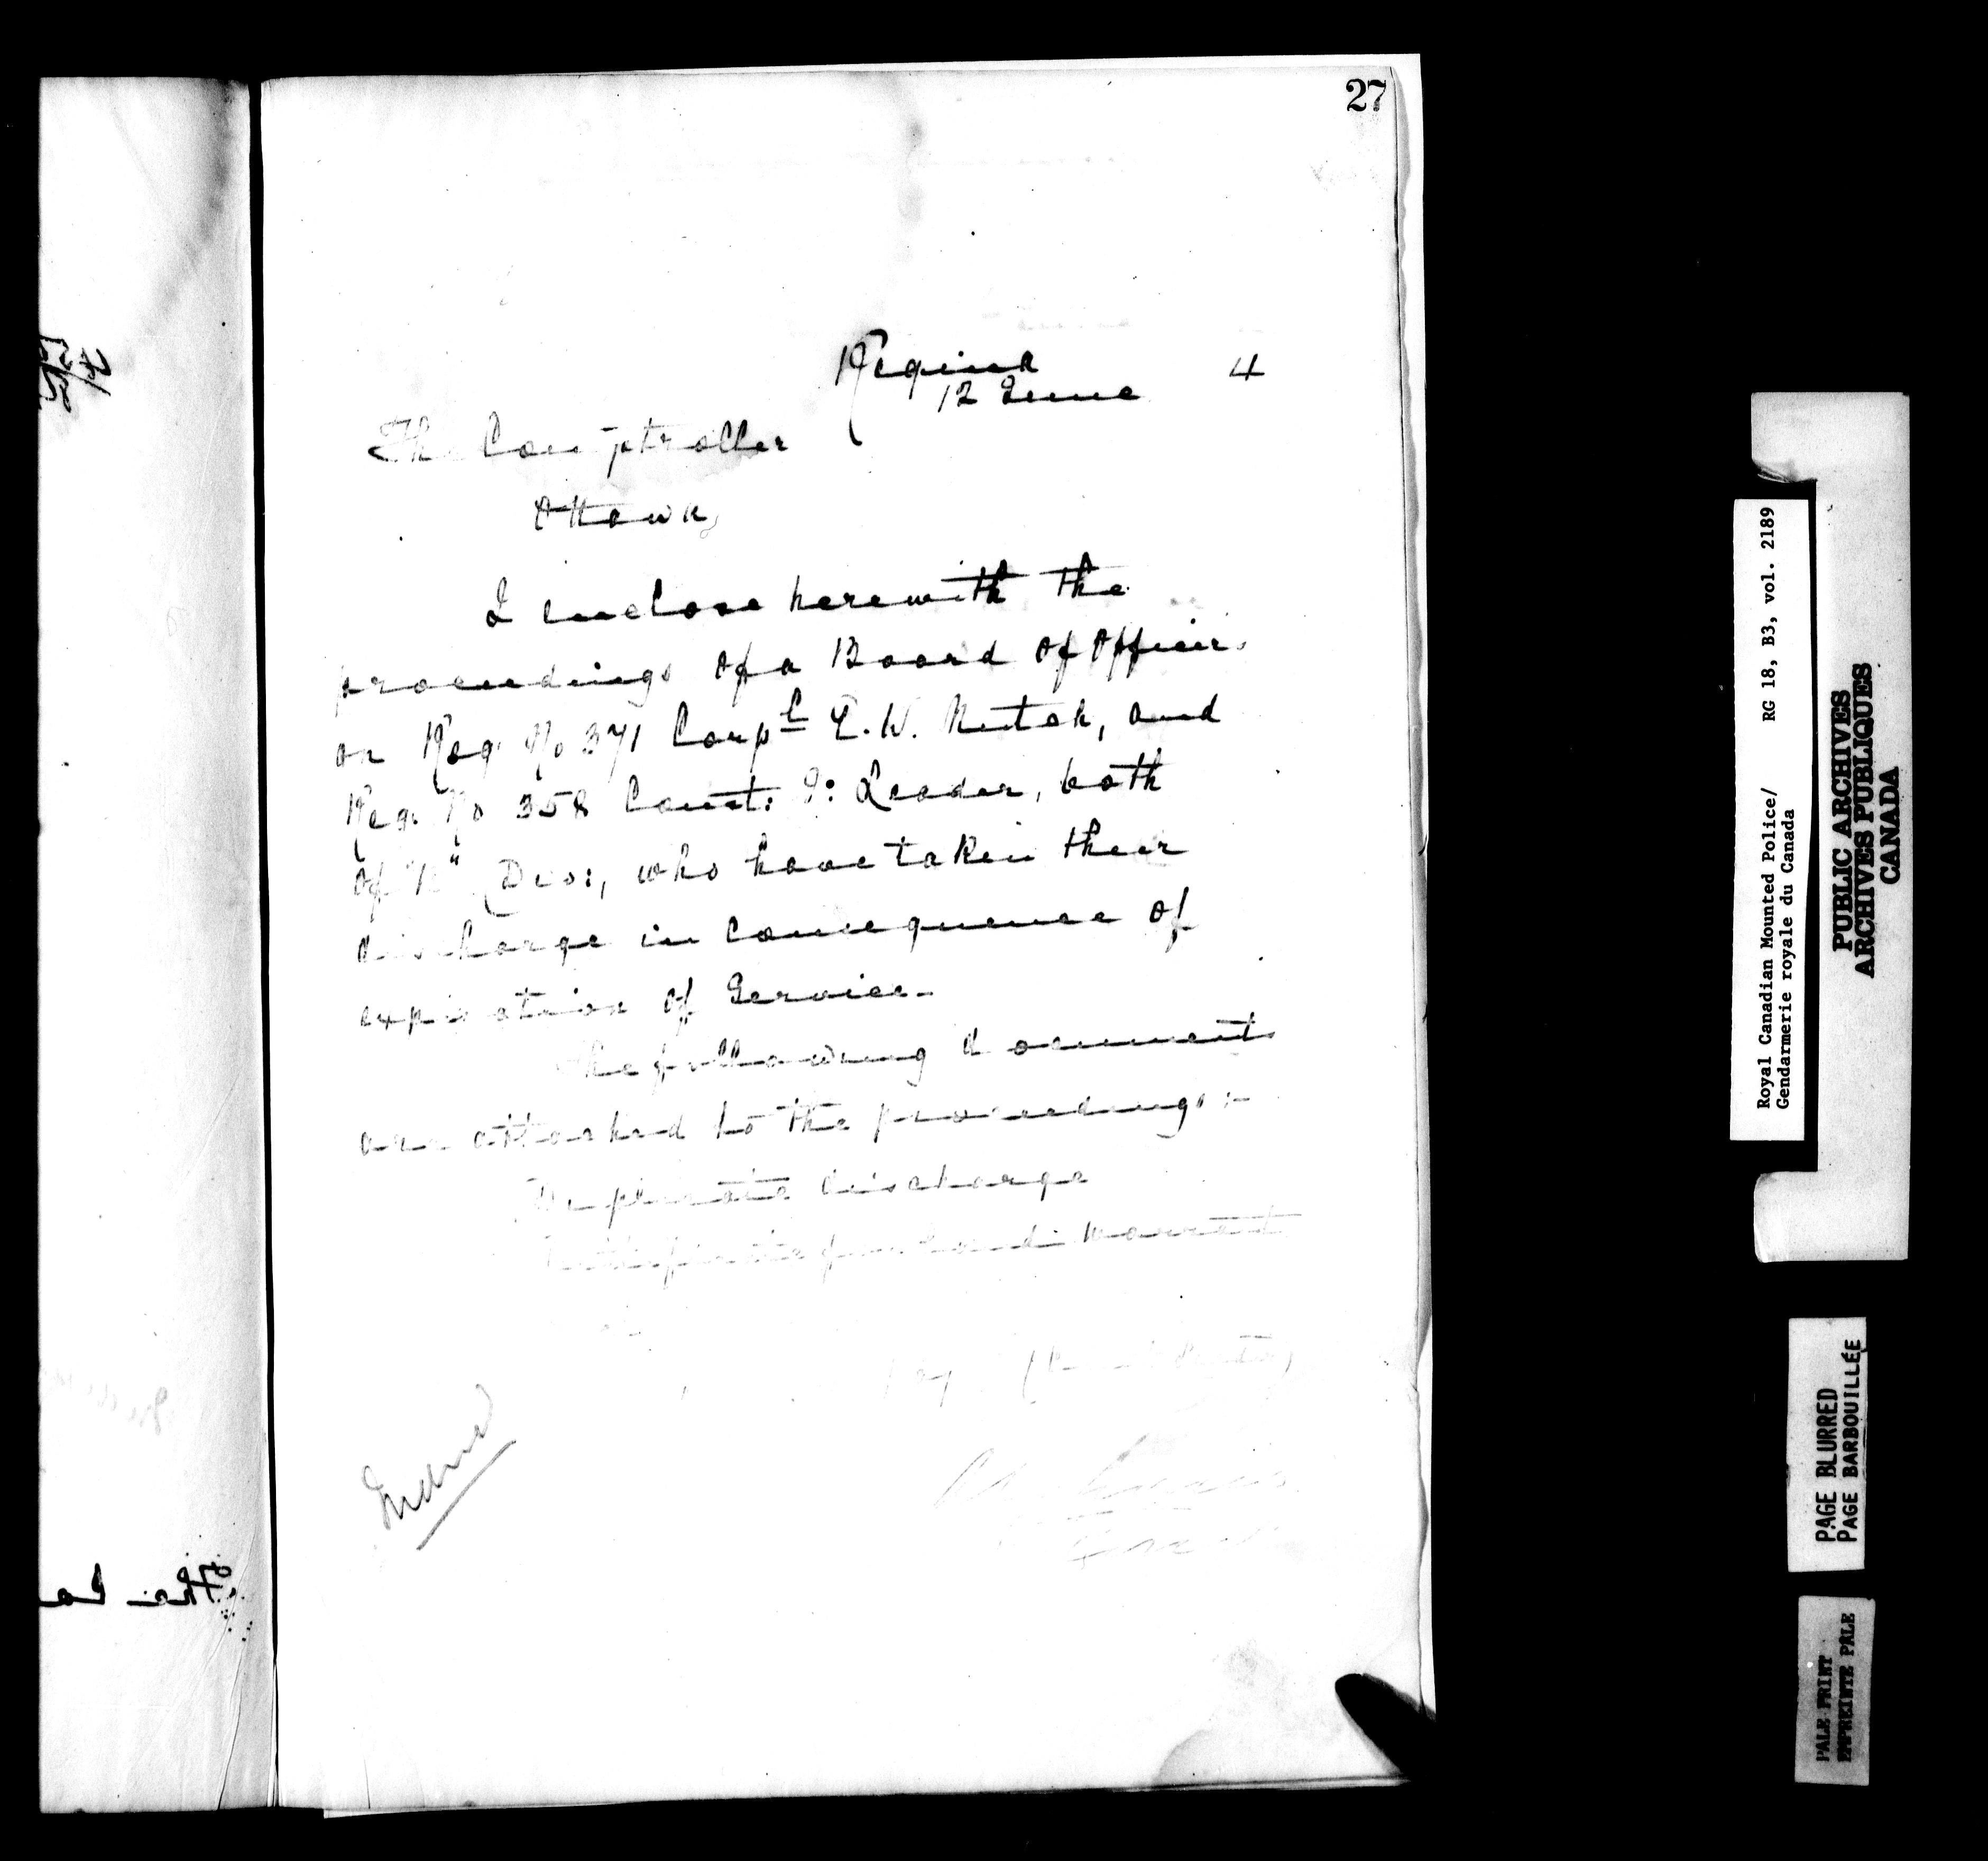 27
Regina 4
12 June
The Comptroller
Ottawa,
I enclose herewith the
proceedings of a Board of Officers
on Reg. No 371 Corpl E. W. and
Reg. No 358 Const: Leader, both
of Div:, who have taken their
discharge in consequence of
expiration of Service.
The following documents
are attached to the proceedings:-
Duplicate discharge
Certificate for Land Warrant
Royal Canadian Mounted Police/ RG 18, B3, vol. 2189
Gendarmerie royale du Canada
PUBLIC ARCHIVES
ARCHIVES PUBLIQUES
CANADA
PAGE BLURRED
PAGE BARBOUILLÉE
PALE PRINT
EMPREINTE PÂLE